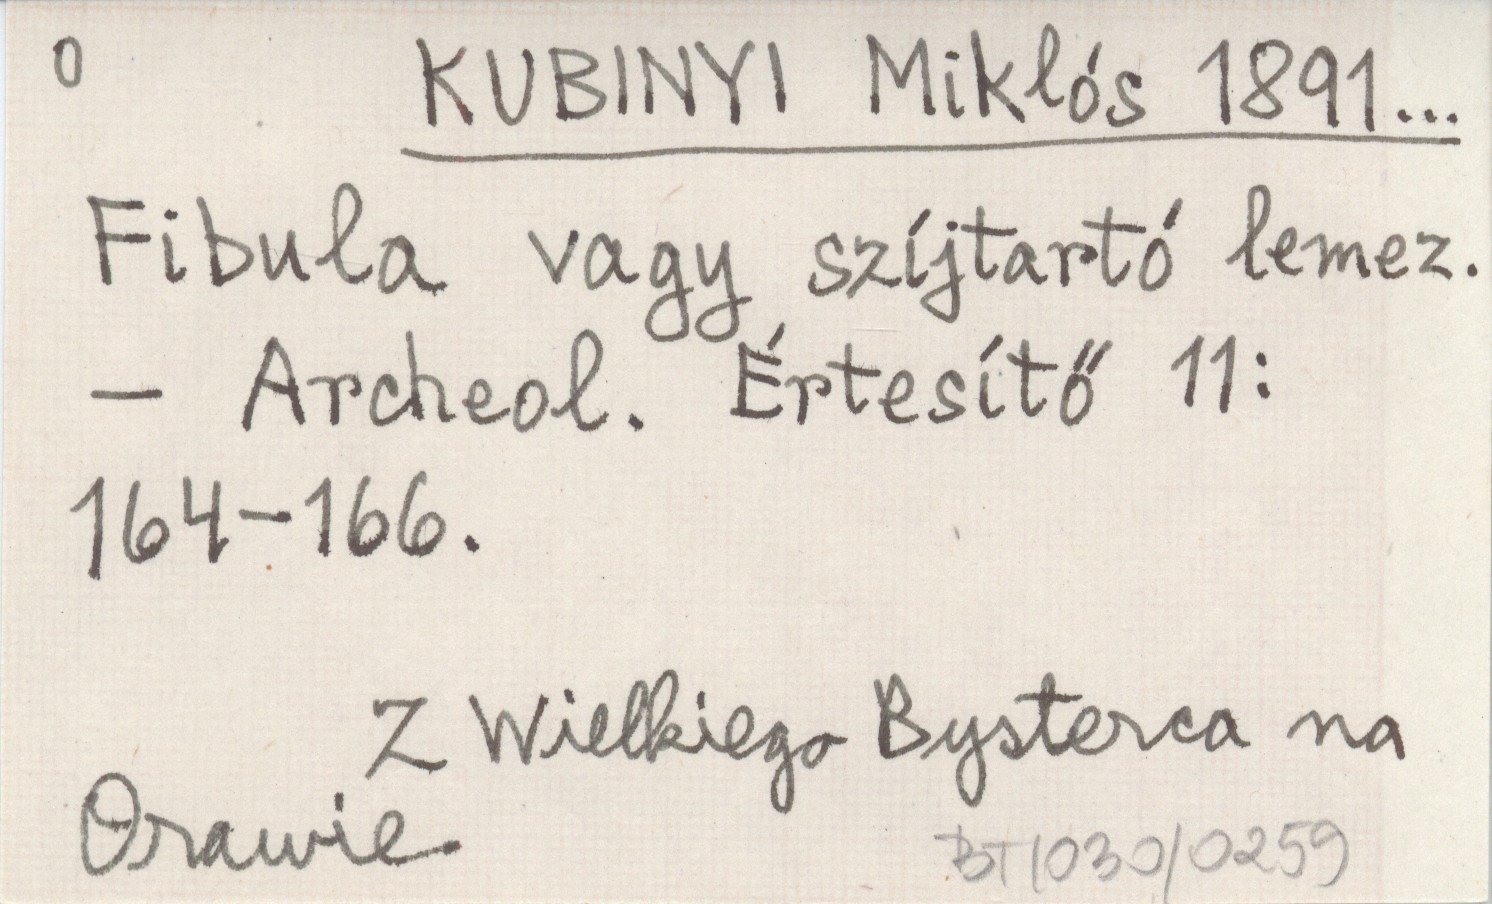 0 KUBINYI Miklós 1891...
Fibula vagy szíjtartó lemez.
– Archeol. Értesítő 11:
164–166.
Z Wielkiego Bysterca na
Orawie.
BT1030/0259